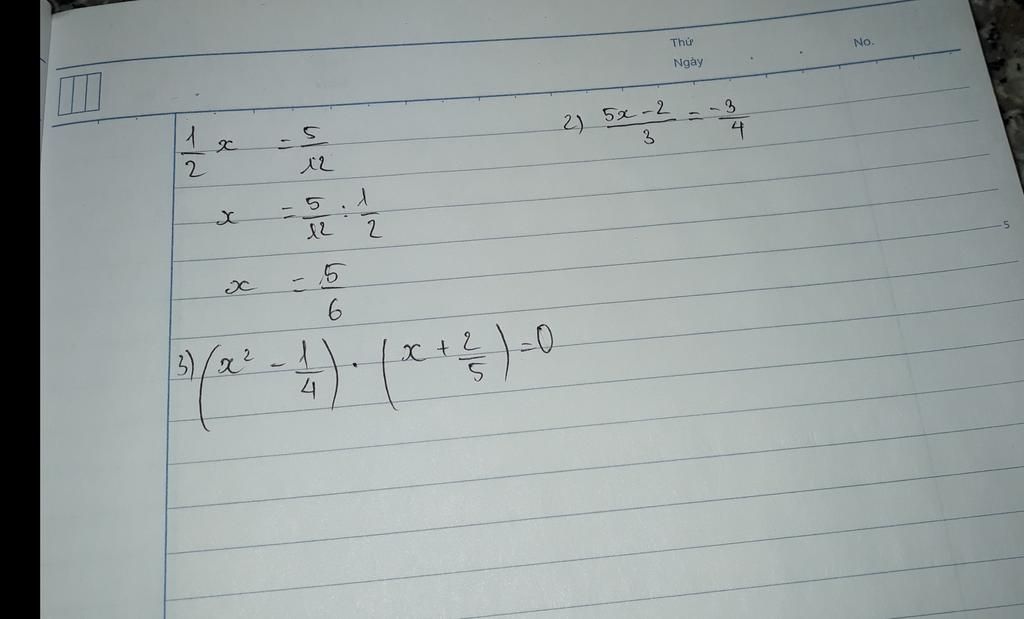 Thứ
No.
Ngày
1/2 x = 5/12
x = 5/12 : 1/2
x = 5/6
2) (5x - 2)/3 = -3/4
5
3) (x² - 1/4) · (x + 2/5) = 0